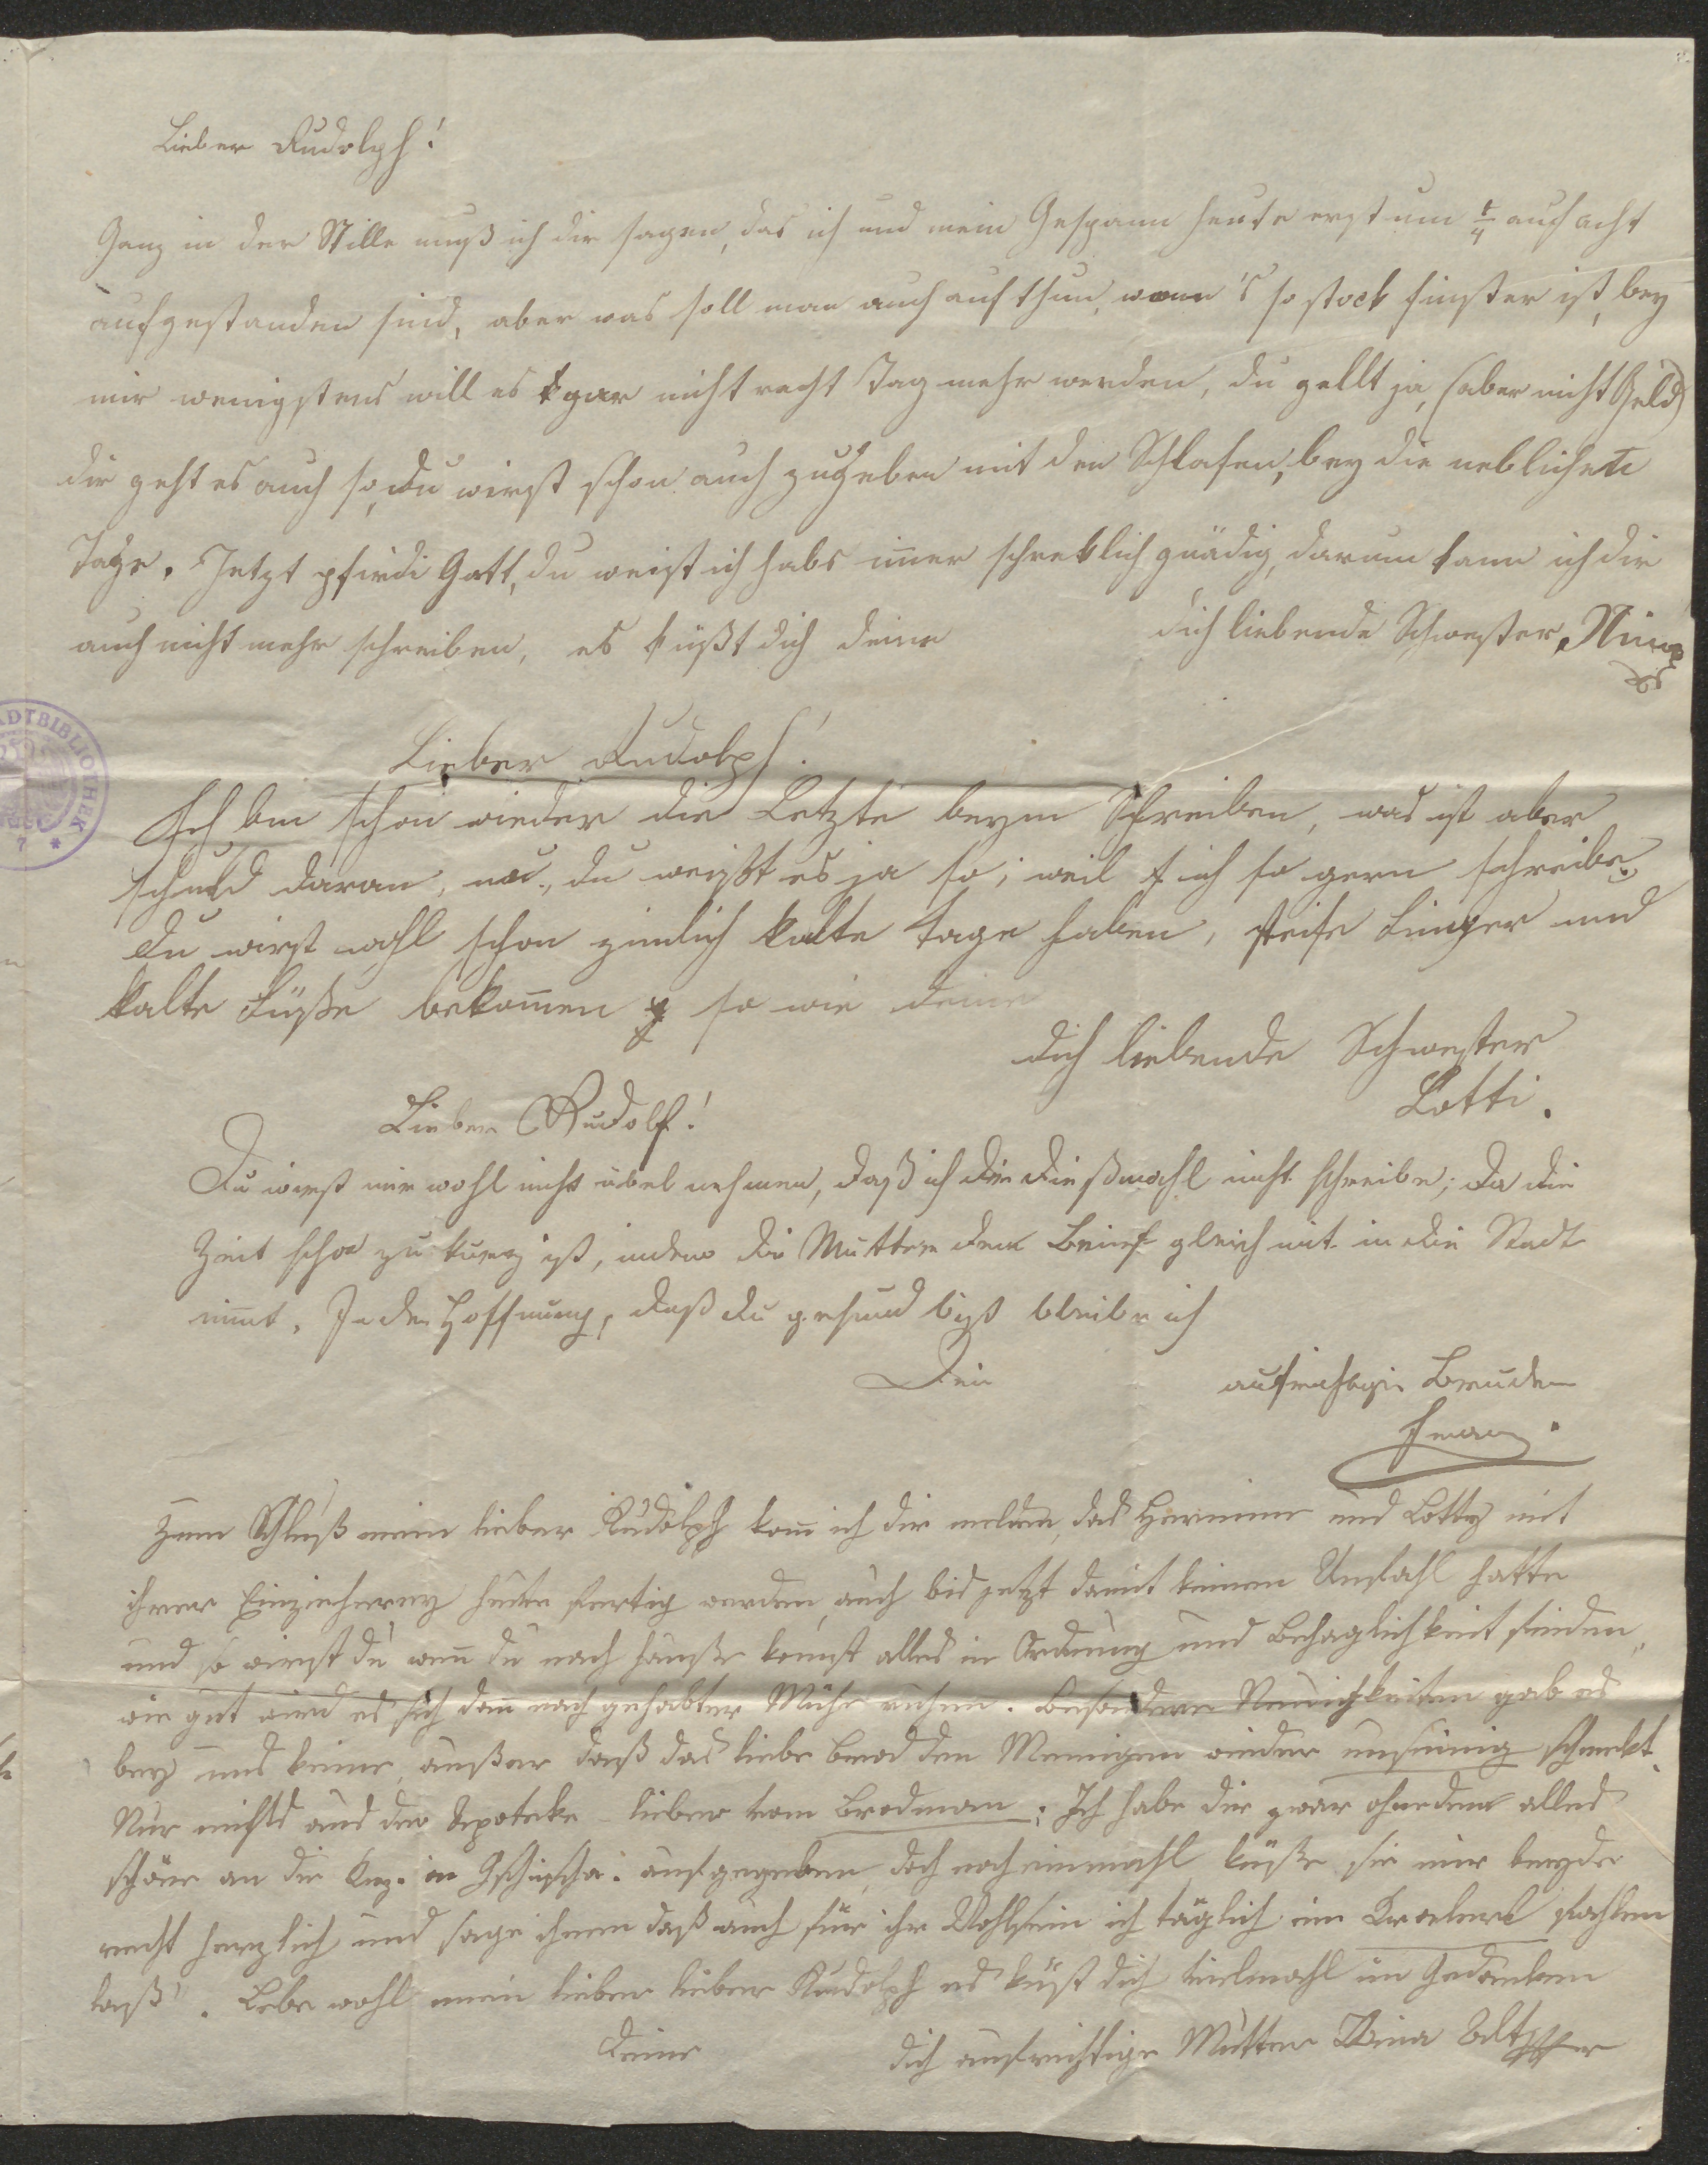 Lieber Rudolph!
Ganz in der Stille muß ich dir sagen, das ich und mein Gespann heute erst um 1/4 auf acht
aufgestanden sind, aber was soll man auch auf thun, wenn's so stock finster ist, bey
mir wenigstens will es gar nicht recht Tag mehr werden, du gellt ja, (aber nicht Geld)
dir geht es auch so, du wirst schon auch zugeben mit den Schlafen, bey die neblichen
Tage. Jetzt pfirdi Gott, du weist ich habs immer schreklich gnädig, darum kann ich dir
auch nicht mehr schreiben, es küßt dich deine
dich liebende Schwester
STADTBIBLIOTHEK
Lieber Rudolph!
Ich bin schon wieder die Letzte beym Schreiben, was ist aber
schuld daran, nu., du weißt es ja so; weil ich so gern schreibe.
Du wirst wohl schon zimlich kalte Tage haben, steife Finger und
kalte Füße bekomen so wie deine
dich liebende Schwester
Lotti.
Lieber Rudolf!
Du wirst mir wohl nicht übel nehmen, daß ich dir dießmahl nicht schreibe; da die
Zeit schon zu kurz ist, indem die Mutter den Brief gleich mit in die Stadt
nimt. In der Hoffnung, daß du gesund bist bleibe ich
Dein aufrichtiger Bruder
Franz.
Zum Schluß mein lieber Rudolph kann ich dir melden, das Hermine und Lotty mit
ihrer Einzieherey heute fertig werden, auch bis jetzt damit keinen Unfahl hatte
und so wirst du wenn du nach hause komst alles in Ordnung und Behaglichkeit finden,
wie gut wird es sich dan nach gehabter Mühe ruhen. Besondere Neuichkeiten gab es
bey uns keine, außer daß das liebe Brod den Meinigen wieder unsinnig schmekt.
Nur nichts aus der Apoteke lieber vom Brodman: Ich habe dir zwar ohnedem alles
schöne an die aufgegeben, doch noch einmahl küße sie mir beyde
recht herzlich und sage ihnen daß auch für ihr Wohlsein ich täglich ein
laß. Lebe wohl mein lieber lieber Rudolph es küst dich vielmahl im Gedanken
Deine dich aufrichtige Mutter